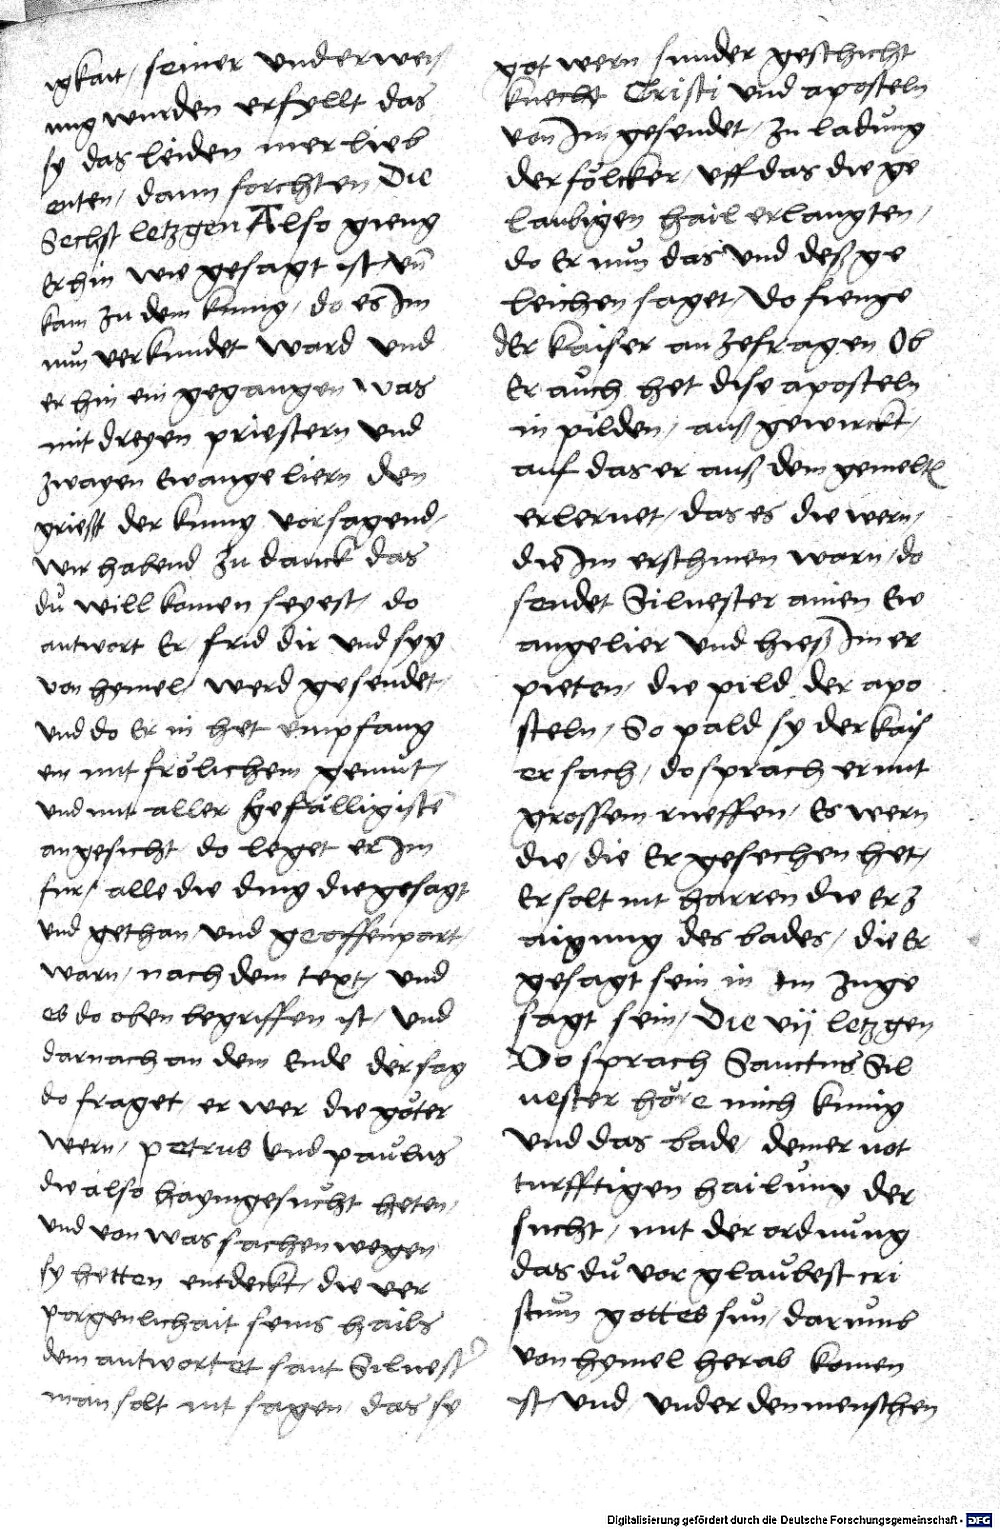 igkait / seiner underweis
ung wurden erfyllt das
sy das leiden mer lieb
enten / dann forchten Die
Sechst letzgen Also gieng
Er hin wie gesagt ist / vn̄
kam zu dem kunig / do es Im
nun verkundet ward und
er hin ein gegangen was
mit dreyen priestern und
zwayen Ewangeliern den
priest der kunig vorsagend /
wir habend zu danck das
dů will komen seyest / do
antwort Er / frid dir und syg
von hemel / werd gesendet /
und do Er in het empfang
en mit frölichem gemůt /
und mit aller gefälligistē
angesicht do leget er Im
fur / alle die ding die gesagt
und gethan / und geoffenpart /
warn / nach dem text / und
es do oben begriffen ist / und
darnach an dem Ende der sag
do fraget / er wer die göter
wern / petrus und paulus
die also haymgesucht heten /
und von was sachen wegen
sy hetten entdeckt / die ver
porgenlichait seins hails
dem antwortet sant Siluester
man solt nit sagen / das sy
got wern sunder geschicht
knecht Cristi und aposteln
von Im gesendet / zu ladung
der fölcker / uff das die ge
laubigen hail erlangten /
do Er nun das und desz ge
leichen saget / do fienge
der kaiser an zefragen Ob
Er auch het dise aposteln
in pilden / ausz gewirckt /
auf das er ausz dem gemelt
erlernet / das es die wern /
die Im erschinen warn / do
sendet Siluester ainen Ew
angelier und hiesz Im er
pieten / die pild der apo
steln / So pald sy der kais
er sach / do sprach er mit
grossem rueffen / Es wern
die / die Er gesechen het /
Er solt nit harren die Erz
aigung des bades / die Er
gesagt sein in Im zuge
sagt sein / Die vij letzgen
Do sprach Sanctus Sil
uester höre mich kunig
und das bade / deiner not
turfftigen hailung der
sucht / mit der ordnung
das dů vor glaubest cri
stum gottes sun / darumb
von hemel herab komen
ist / und under den menschen
Digitalisierung gefördert durch die Deutsche Forschungsgemeinschaft - DFG